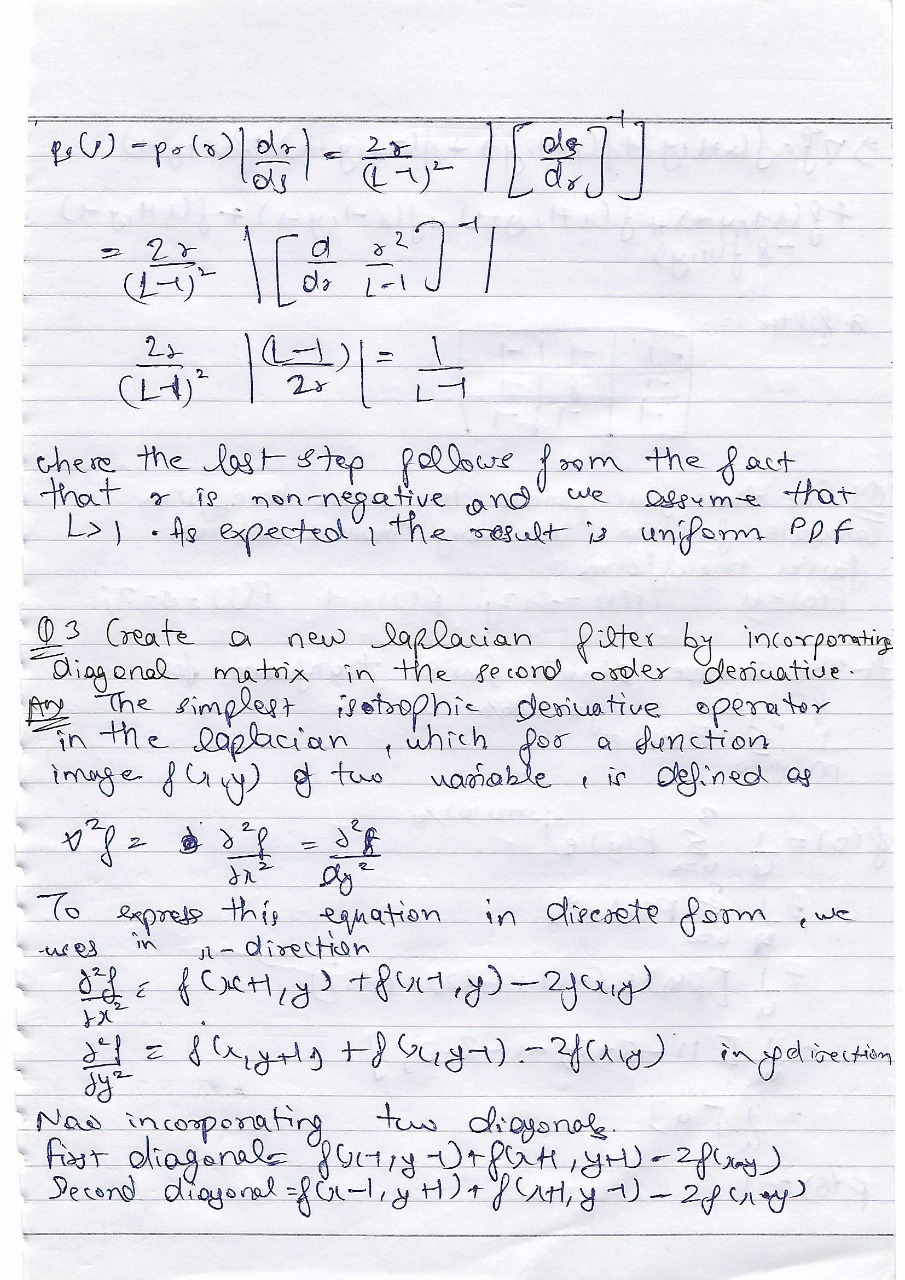 ps(s) = pr(r) |dr/ds| = 2r/(L-1)² |[ds/dr]⁻¹|
= 2r/(L-1)² |[d/dr r²/L-1]⁻¹|
2r/(L-1)² |(L-1)/2r| = 1/L-1
where the last step follows from the fact
that r is non-negative and we assume that
L>1 . As expected, the result is uniform PDF
Q3 Create a new laplacian filter by incorporating
Diagonal matrix in the second order derivative.
Ans The simplest isotrophic derivative operator
in the laplacian , which for a function
image f(x,y) of two variable , is defined as
∇²f = ∂²f/∂x² = ∂²f/∂y²
To express this equation in discrete form , we
uses in x-direction
∂²f/∂x² = f(x+1,y) + f(x-1,y) - 2f(x,y)
∂²f/∂y² = f(x,y+1) + f(x,y-1) - 2f(x,y) in y direction
Now incorporating two diagonals.
First diagonal = f(x-1,y-1) + f(x+1,y+1) - 2f(x,y)
Second diagonal = f(x-1,y+1) + f(x+1,y-1) - 2f(x,y)